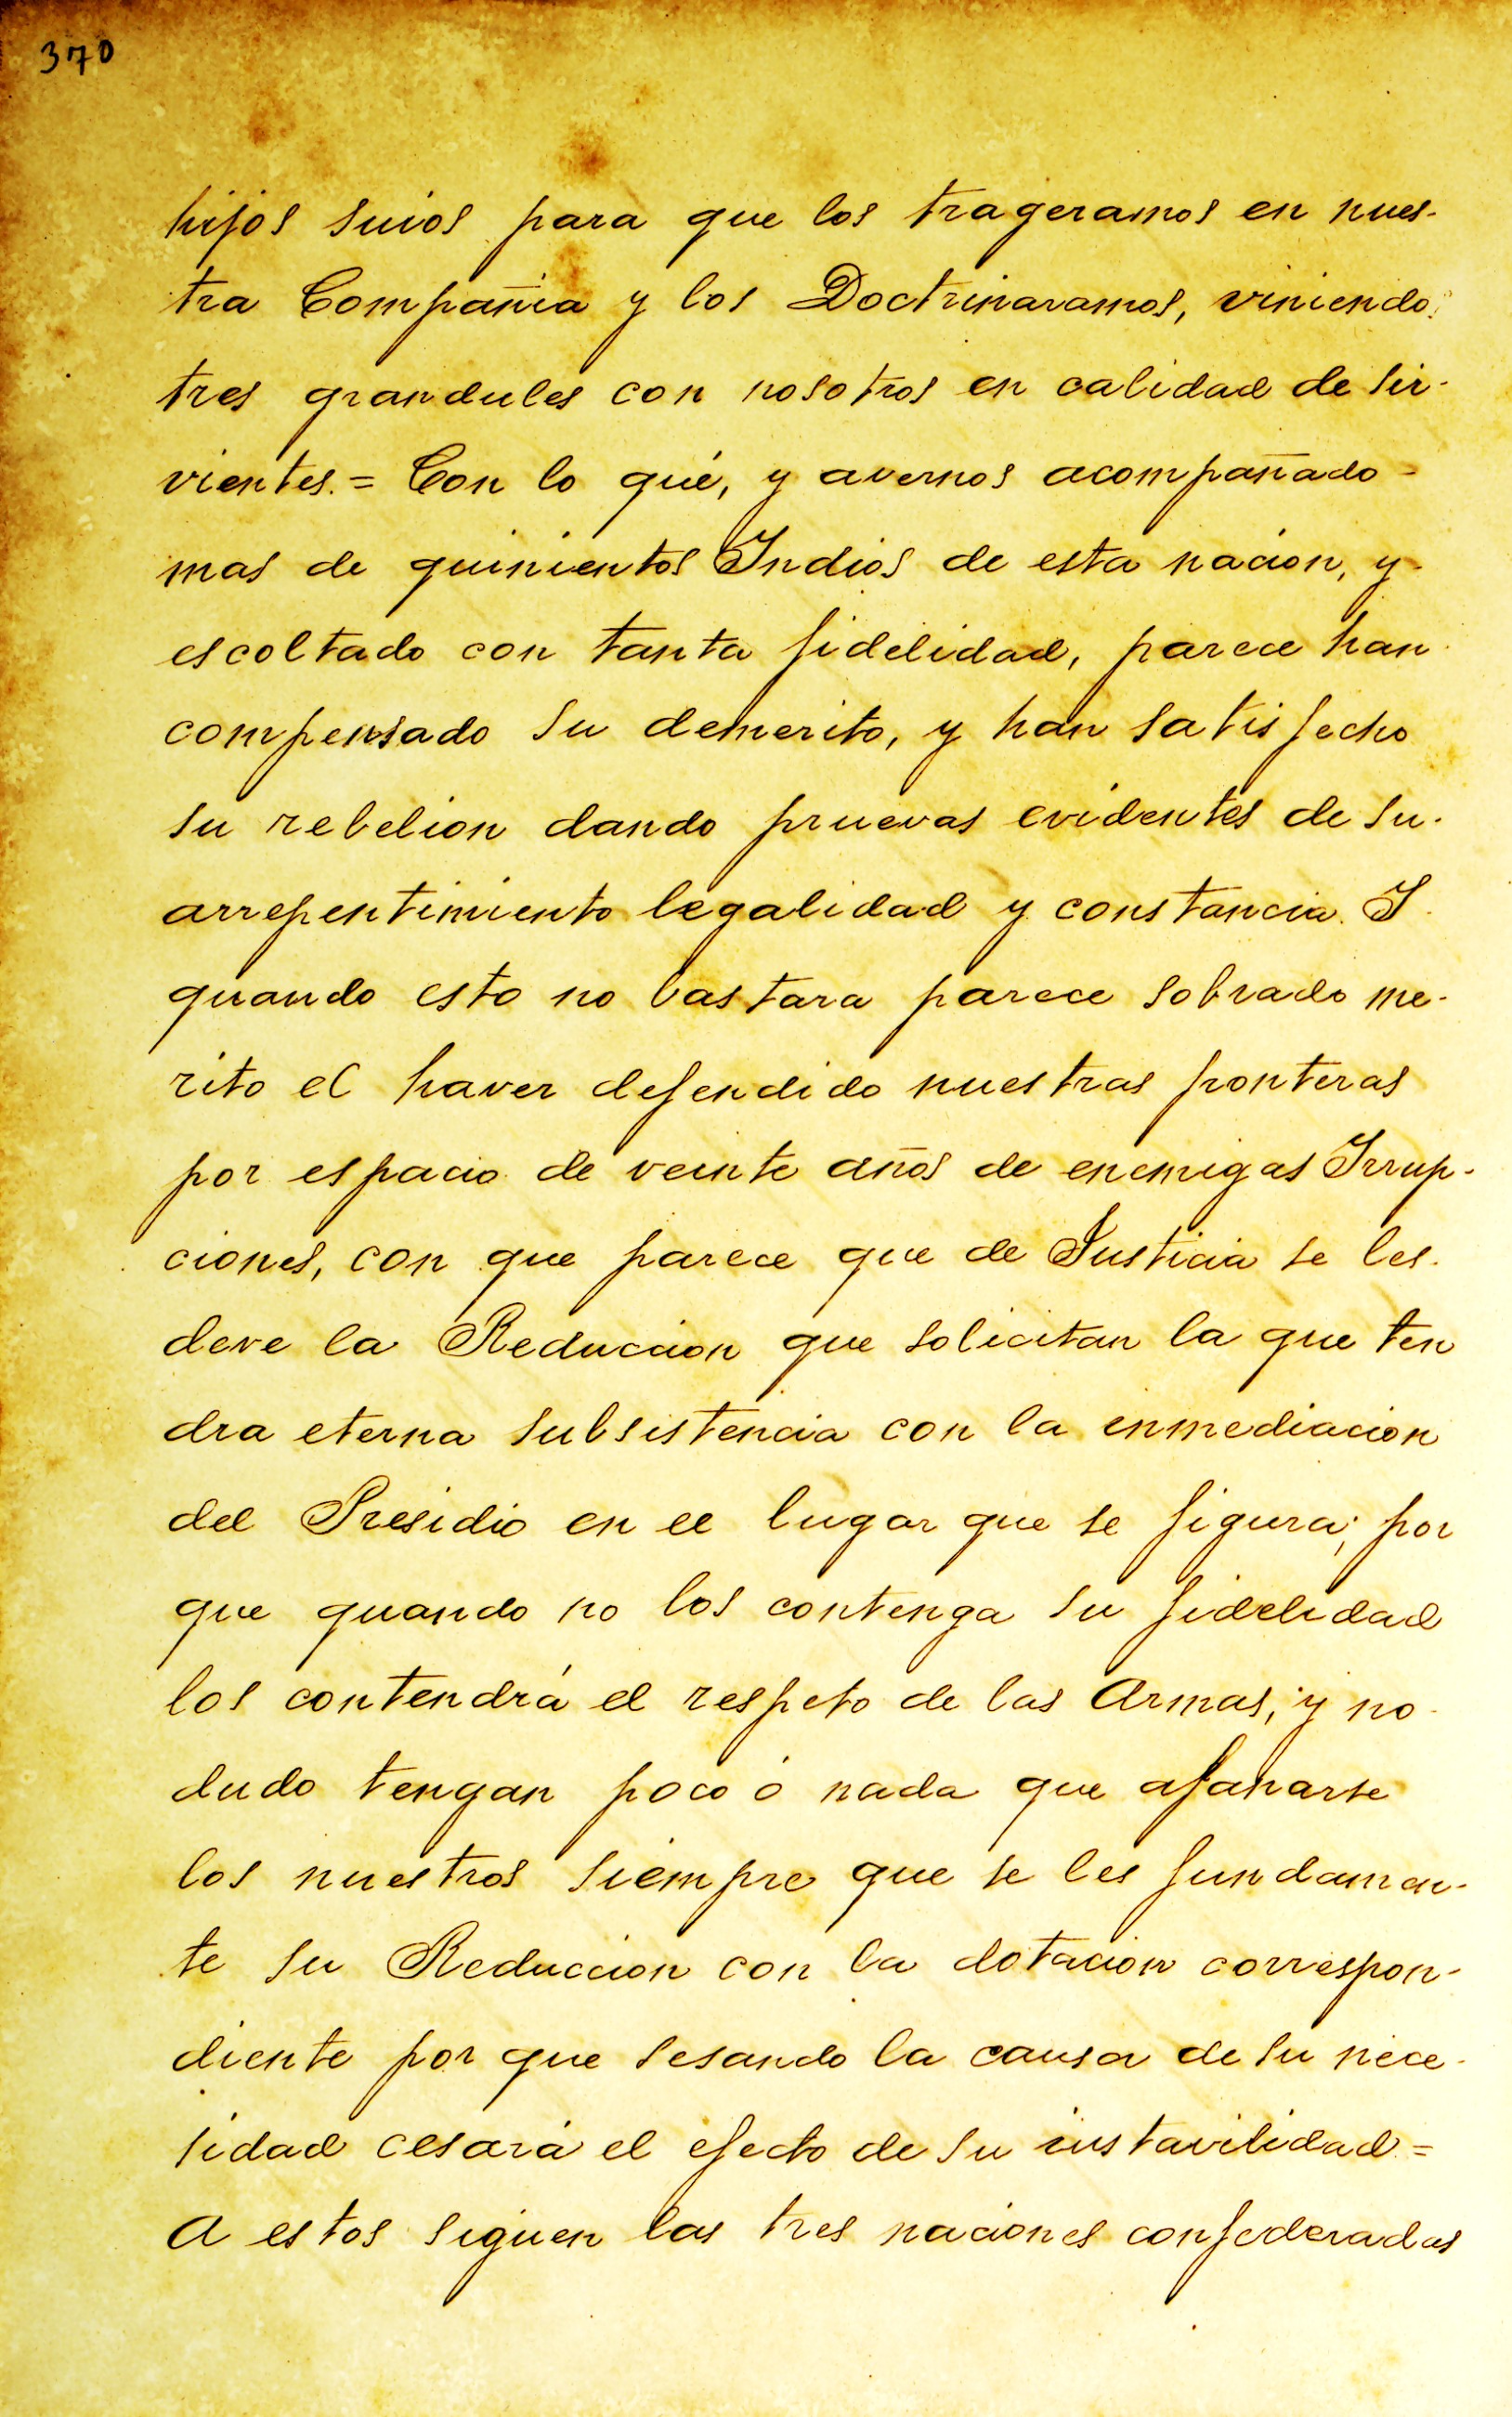 370
hijos suios para que los trageramos en nues-
tra Compañia y los Doctrinaramos, viniendo
tres grandules con nosotros en calidad de sir-
vientes.= Con lo qué, y avernos acompañado -
mas de quinientos Indios de esta nacion, y-
escoltado con tanta fidelidad, parece han
compensado su demerito, y han satisfecho
su rebelion dando pruevas evidentes de su.
arrepentimiento legalidad y constancia. Y
quando esto no bastara parece sobrado me-
rito el haver defendido nuestras fronteras
por espacio de veinte años de enemigas Irrup-
ciones, con que parece que de Justicia se les.
deve la Reduccion que solicitan la que ten
dra eterna subsistencia con la inmediacion
del Presidio en el lugar que se figura; por
que quando no los contenga su fidelidad
los contendrá el respeto de las Armas; y no-
dudo tengan poco ó nada que afanarse
los nuestros siempre que se les fundamen-
te su Reduccion con la dotacion correspon-
diente por que sesando la causa de su nece-
sidad cesará el efecto de su instavilidad =
A estos siguen las tres naciones confederadas